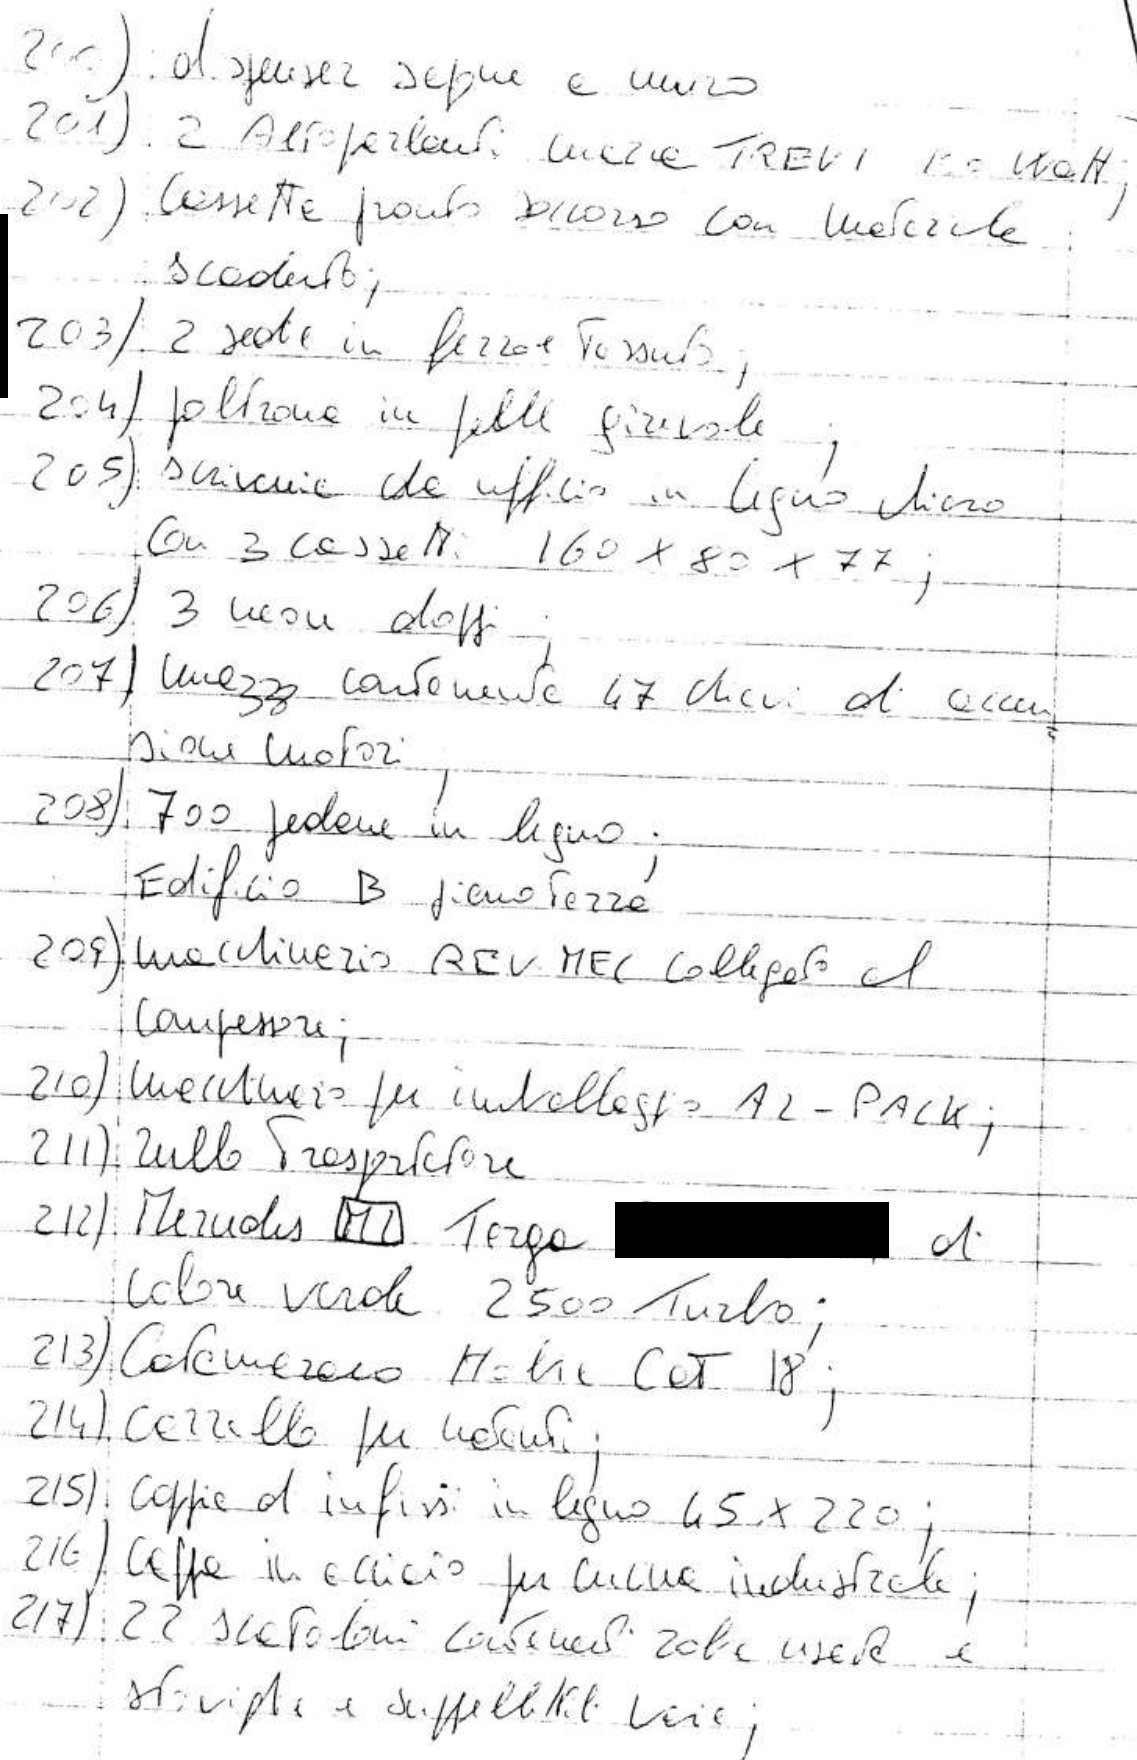 200) dispenser acqua a muro
201) 2 Altoparlanti marca TREVI 120 Watt;
202) Cassetta pronto soccorso con materiale
scaduto;
203) 2 sedie in ferro e tessuto;
204) poltrona in pelle girevole;
205) scrivania da ufficio in legno chiaro
con 3 cassetti 160 x 80 x 77;
206) 3 neon doppi;
207) mazzo contenente 47 chiavi di accen
sione motori;
208) 700 pedane in legno;
Edificio B piano terra
209) macchinario REV. MEC collegato al
compressore;
210) macchinario per imballaggio A2-PACK;
211) rullo trasportatore
212) Mercedes Targa di
colore verde 2500 Turbo;
213) Catamarano CAT 18;
214) carrello per natanti;
215) coppia di infissi in legno 45 x 220;
216) cappa in acciaio per cucina industriale;
217) 22 scatoloni contenenti roba usata e
stoviglie e suppellettili varie;